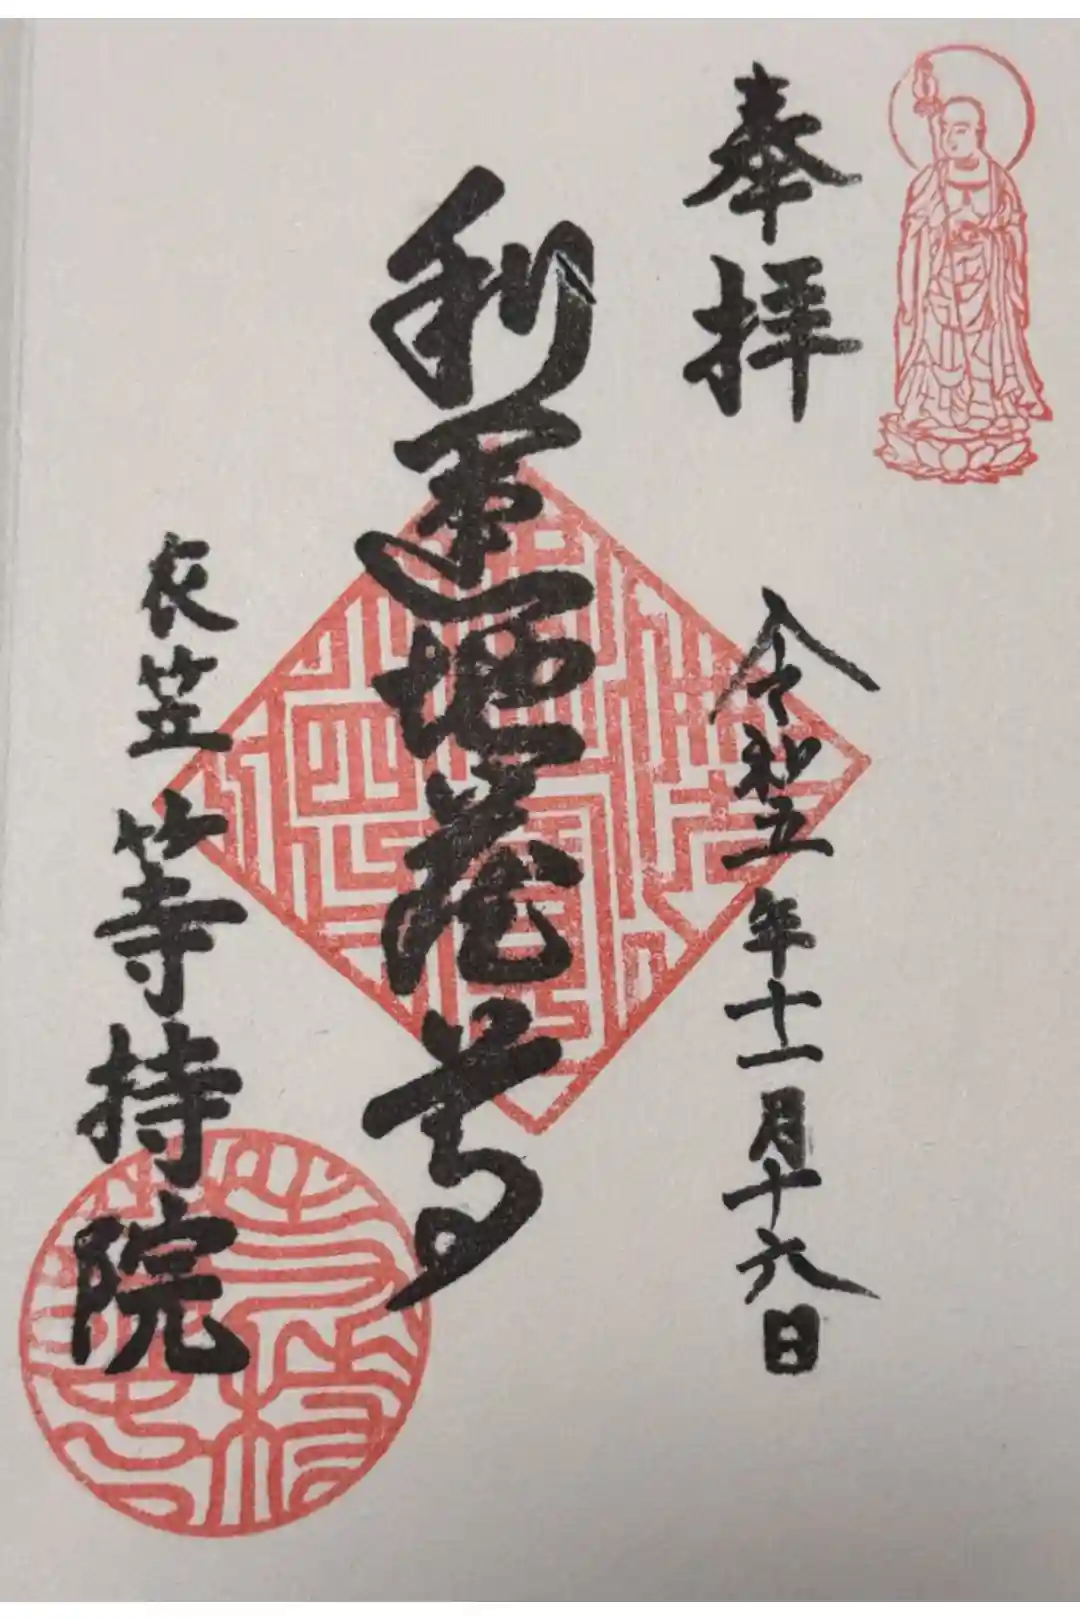 奉拝
令和五年十一月十六日
利運地蔵尊
衣笠 等持院